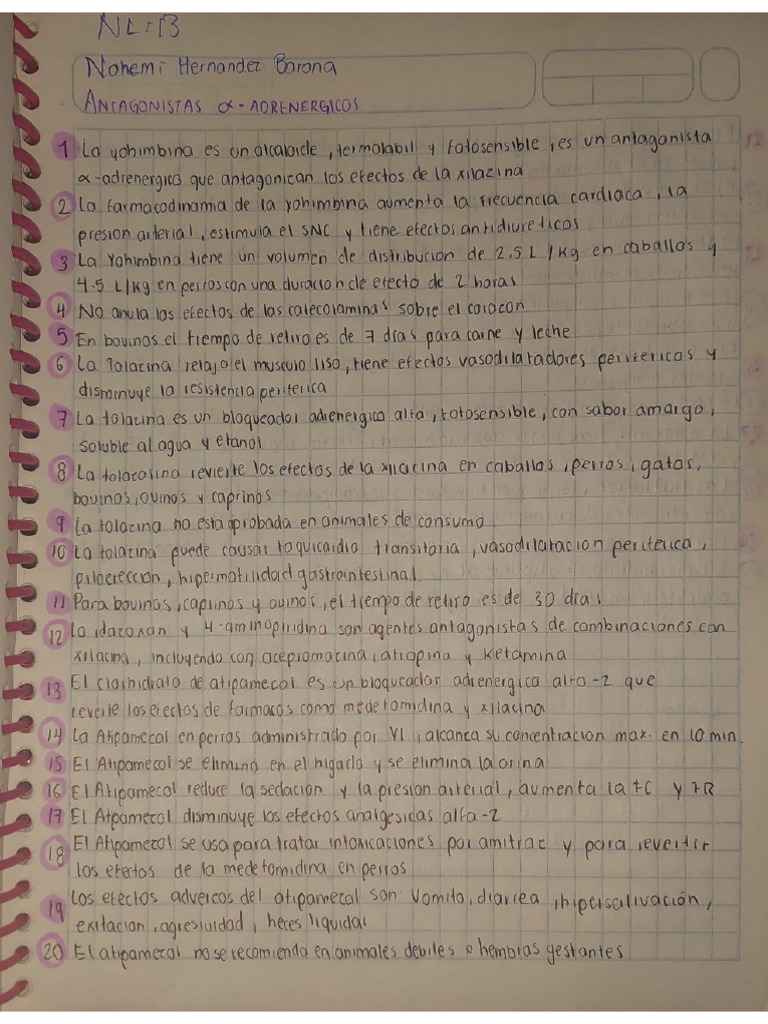 NL:13
Nohemi Hernandez Barona
ANTAGONISTAS α-ADRENERGICOS
1 La yohimbina es un alcaloide, termolabil y fotosensible, es un antagonista
α-adrenergico que antagonizan los efectos de la xilazina
2 La farmacodinamia de la yohimbina aumenta la frecuencia cardiaca, la
presion arterial, estimula el SNC y tiene efectos antidiureticos
3 La Yohimbina tiene un volumen de distribucion de 2.5 L/Kg en caballos y
4.5 L/Kg en perros con una duracion de efecto de 2 horas
4 No anula los efectos de las catecolaminas sobre el corazon
5 En bovinos el tiempo de retiro es de 7 dias para carne y leche
6 La Tolazina relaja el musculo liso, tiene efectos vasodilatadores perifericos y
disminuye la resistencia periferica
7 La tolazina es un bloqueador adrenergico alfa, fotosensible, con sabor amargo,
soluble al agua y etanol
8 La tolazolina revierte los efectos de la xilacina en caballos, perros, gatos,
bovinos, ovinos y caprinos
9 La tolazina no esta aprobada en animales de consumo
10 La tolazina puede causar taquicardia transitoria, vasodilatacion periferica,
piloereccion, hipermotilidad gastrointestinal
11 Para bovinos, caprinos y ovinos, el tiempo de retiro es de 30 dias
12 La idazoxan y 4-aminopiridina son agentes antagonistas de combinaciones con
xilacina, incluyendo con acepromacina, atropina y ketamina
13 El clorhidrato de atipamezol es un bloqueador adrenergico alfa-2 que
revierte los efectos de farmacos como medetomidina y xilacina
14 La Atipamezol en perros administrado por VI, alcanza su concentracion max. en 10 min.
15 El Atipamezol se elimina en el higado y se elimina la orina
16 El Atipamezol reduce la sedacion y la presion arterial, aumenta la FC y FR
17 El Atpamezol disminuye los efectos analgesicas alfa-2
18 El Atipamezol se usa para tratar intoxicaciones por amitraz y para revertir
los efectos de la medetomidina en perros
19 Los efectos advercos del atipamezol son: Vomito, diarrea, hipersalivación,
exitacion, agresividad, heces liquidas
20 El atipamezol no se recomienda en animales debiles o hembras gestantes